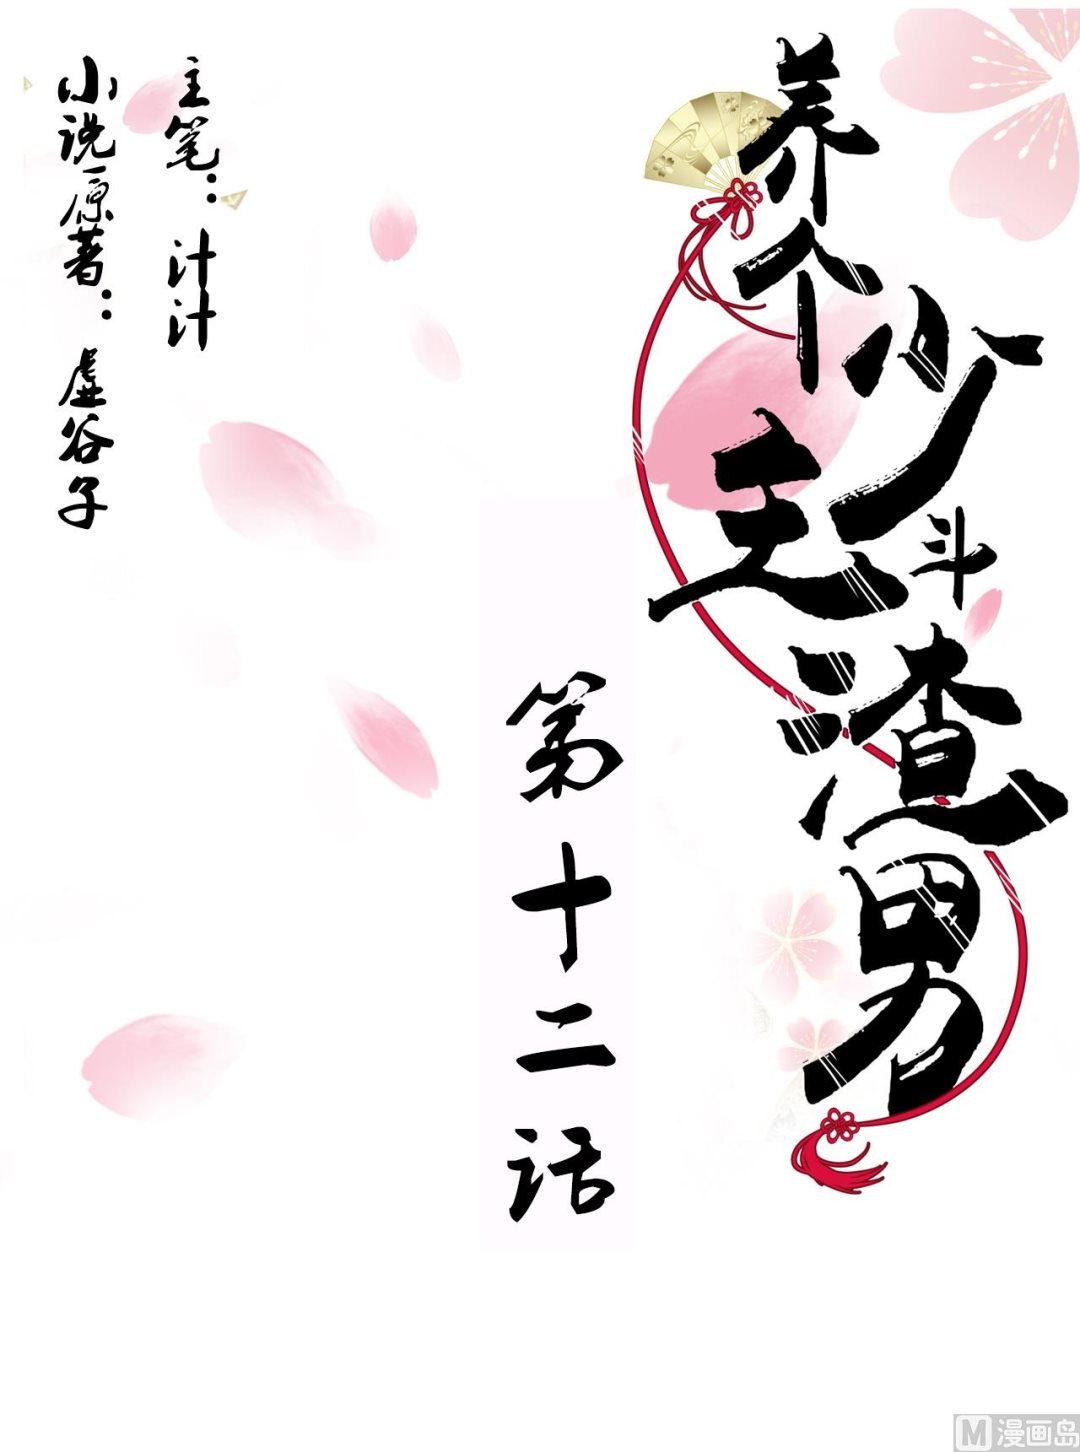 养个少主斗渣男
第十二话
主笔：汁汁
小说原著：虚谷子
漫画岛